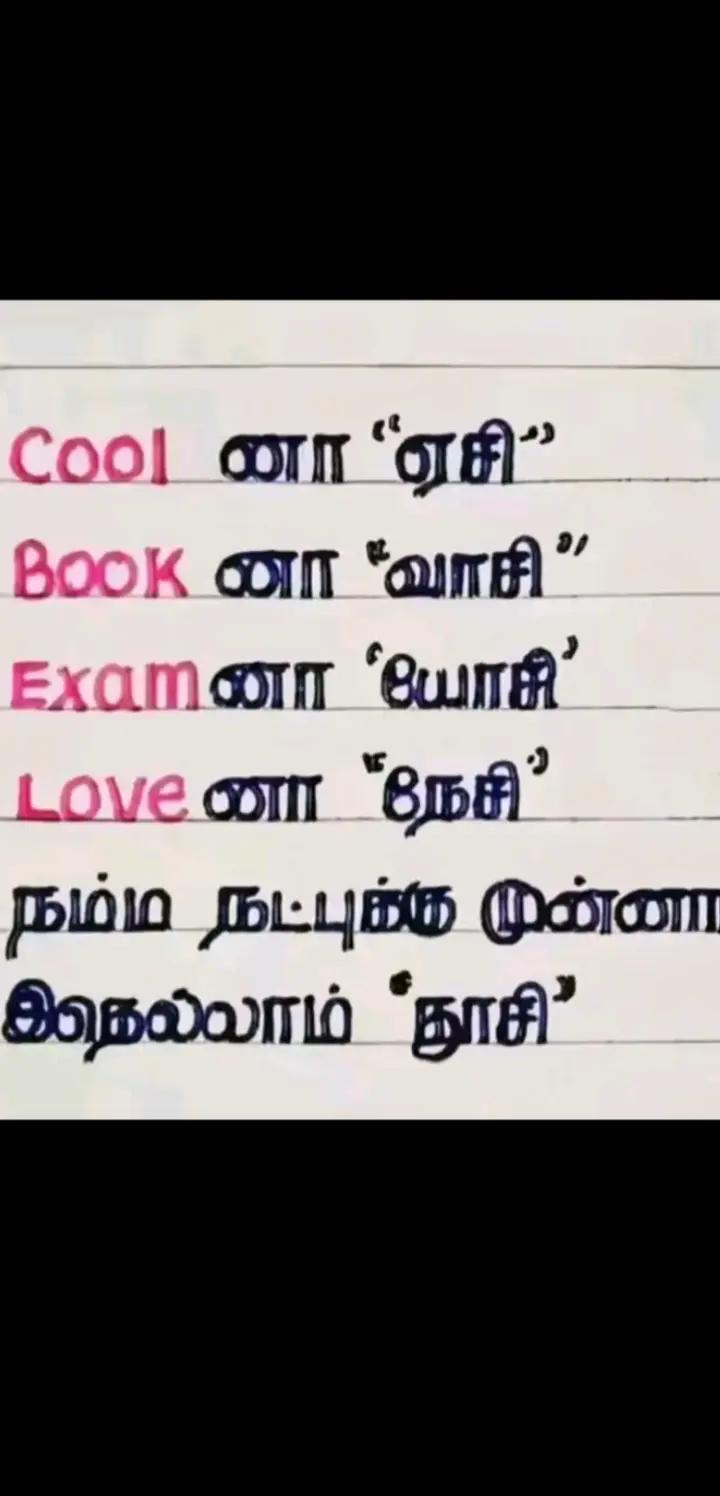 Cool னா “ஏசி”
Book னா “வாசி”
Exam னா ‘யோசி’
Love னா “நேசி’
நம்ம நட்புக்கு முன்னா
இதெல்லாம் “தூசி”